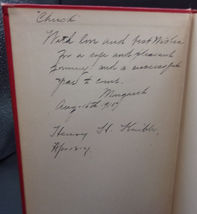 "Chuck"
With love and best Wishes
for a safe and pleasant
journey and a successful
year to come.
Margaret
Aug. 16th
Henry H.